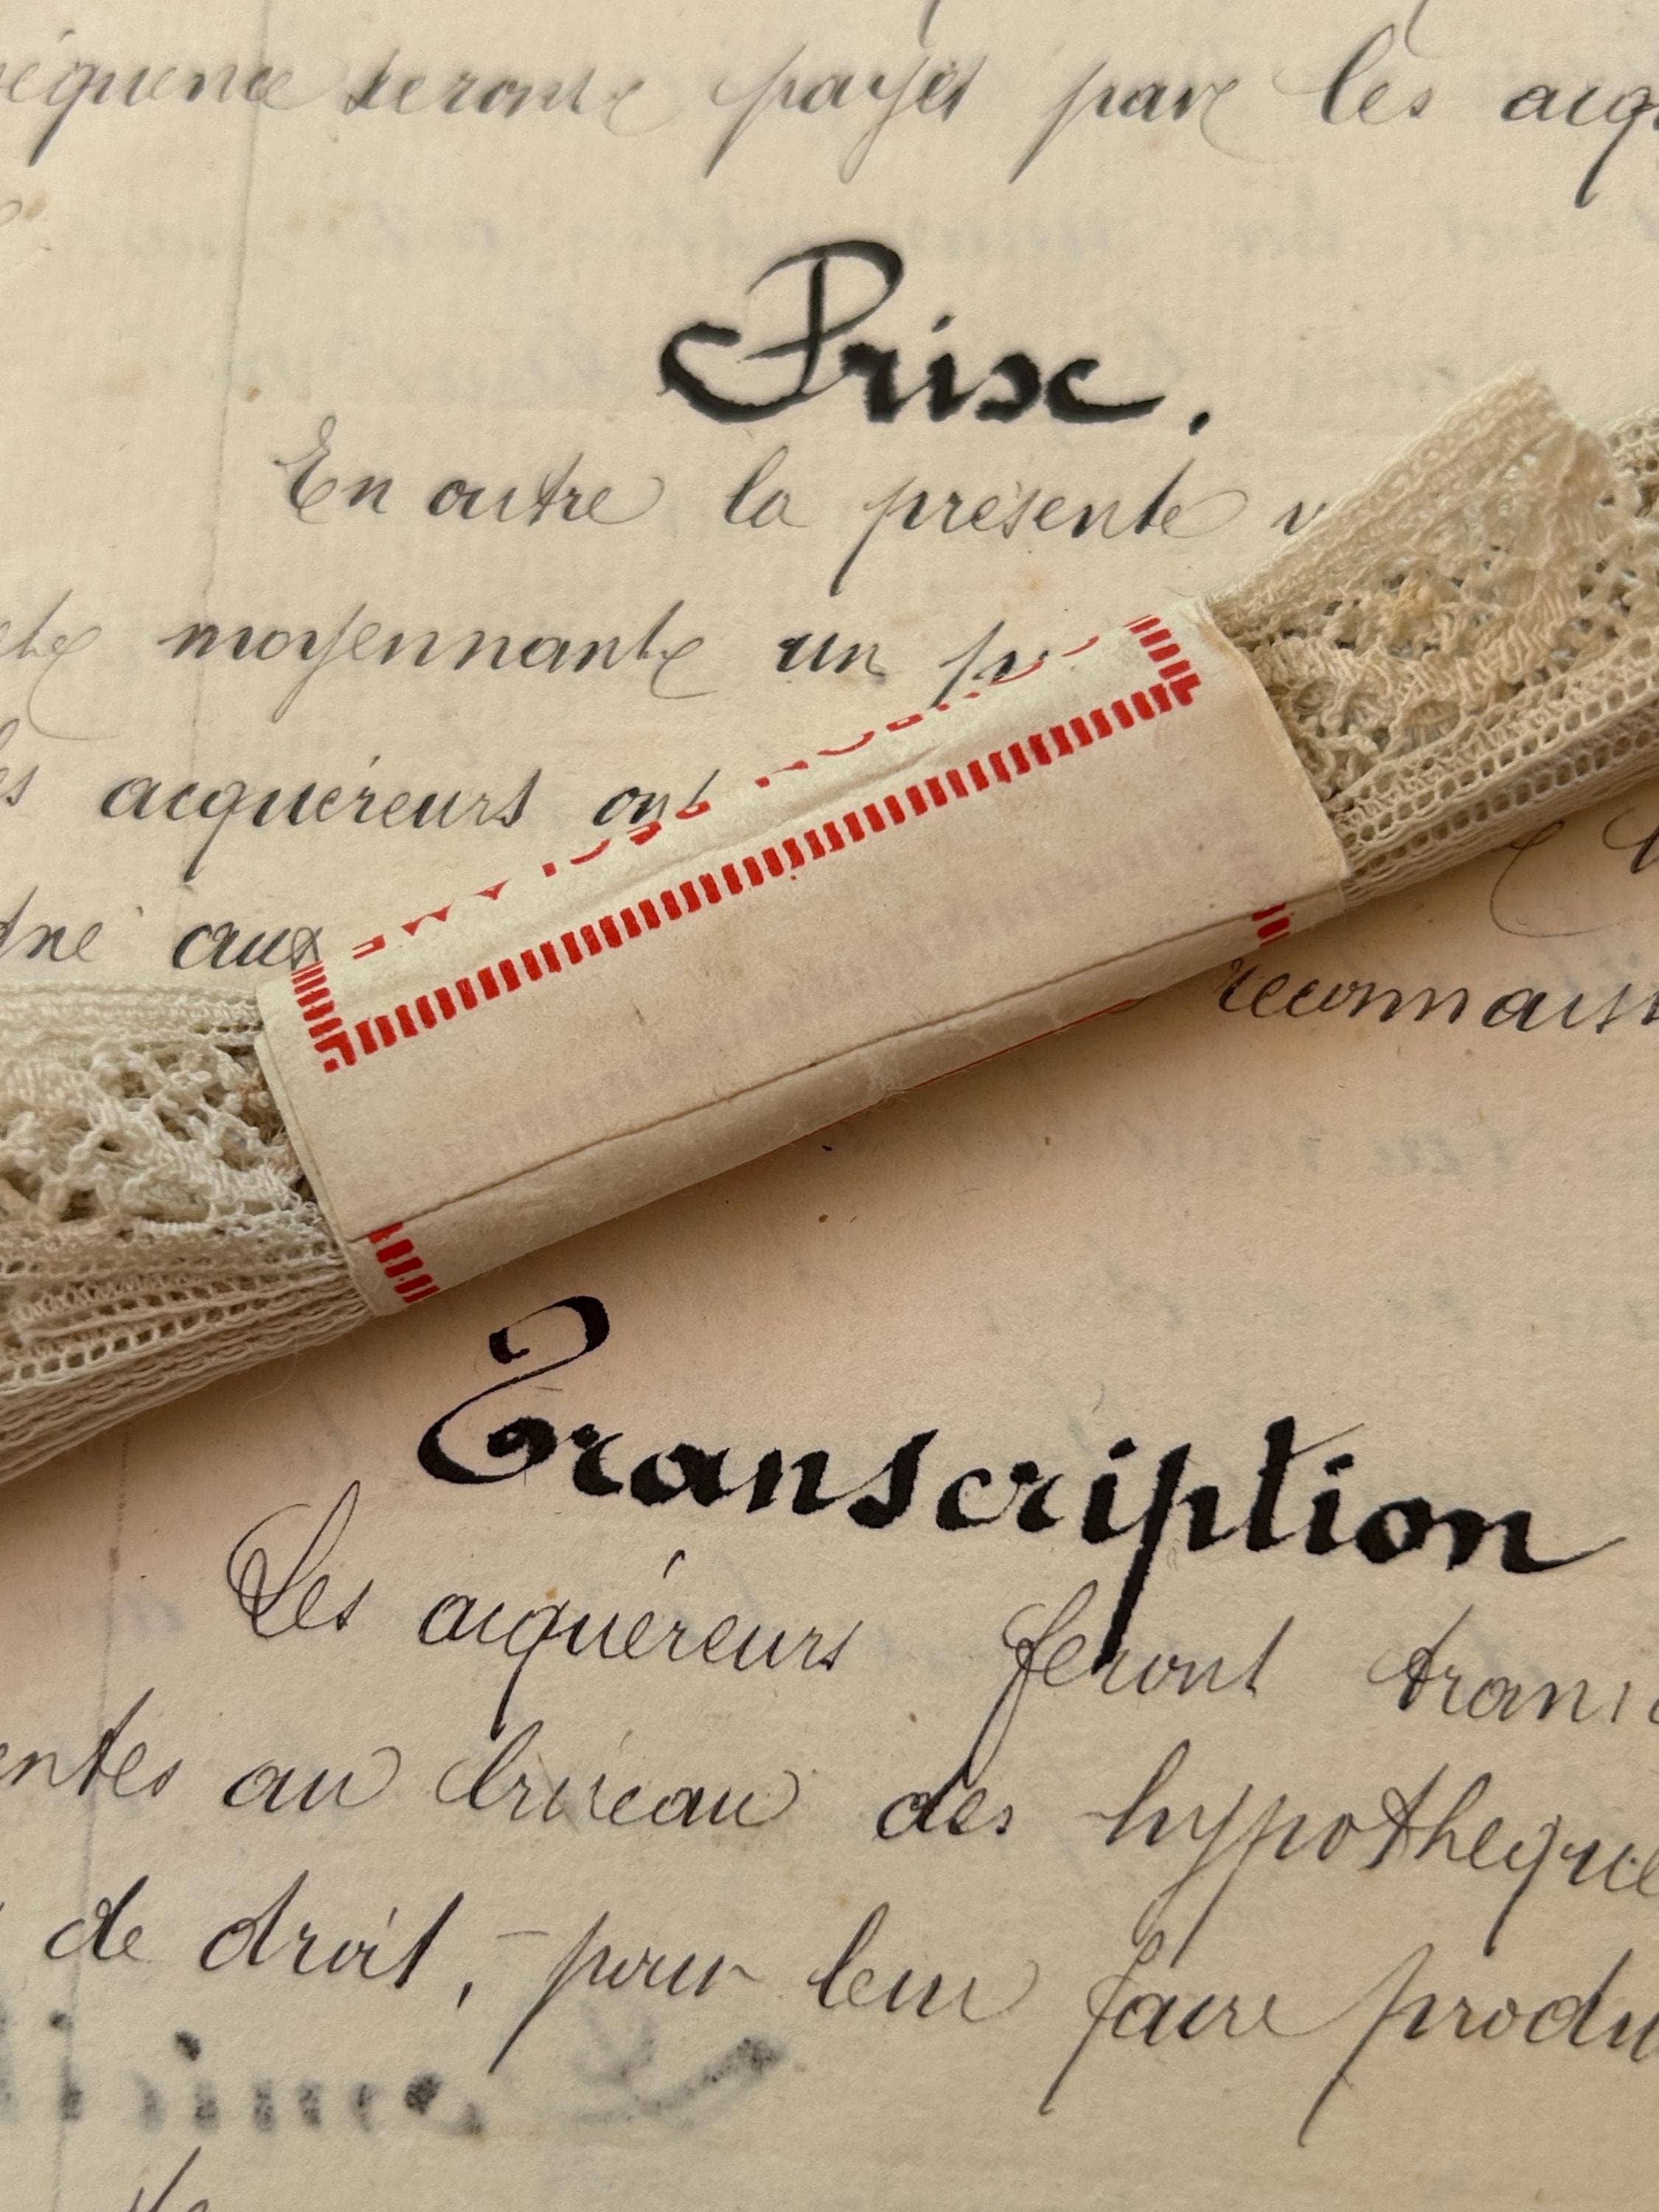 séquence seront payés par les acq
Prix.
En outre la présente v
ete moyennant un pr
les acquéreurs ont
dne aux
reconnaiss
Transcription
Les acquéreurs feront transc
entes au bureau des hypothèque
de droit, pour leur faire produ